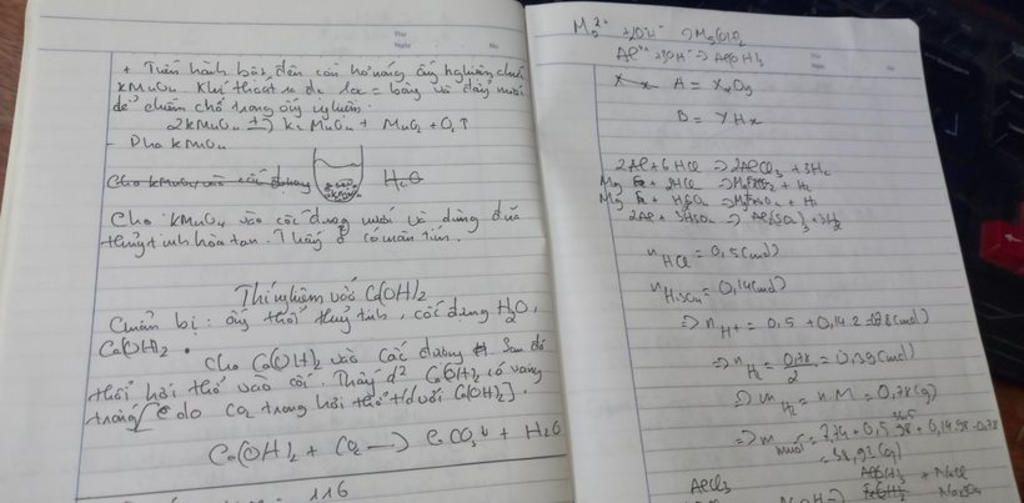 Thứ
Ngày
No
+ Tiến hành bật đèn cồn hơ nóng ống nghiệm chứa
KMnO4. Khí thoát ra
để chiếm chỗ trong ống nghiệm.
2KMnO4 → K2MnO4 + MnO2 + O2↑
- Pha KMnO4
KMnO4
H2O
Cho KMnO4 vào cốc đựng nước và dùng đũa
thuỷ tinh hoà tan. Thấy có màn tím.
Thí nghiệm với Ca(OH)2
Chuẩn bị: ống thổi thuỷ tinh, cốc đựng H2O,
Ca(OH)2.
Cho Ca(OH)2 vào cốc đường Sau đó
thổi hơi thở vào cốc. Thấy d² Ca(OH)2 có vẩng
trắng [do CO2 trong hơi thở t/d với Ca(OH)2].
Ca(OH)2 + CO2 → CaCO3↓ + H2O
116
Mg2+ + 2OH- → Mg(OH)2
Al3+ + 3OH- → Al(OH)3
Thứ
Ngày
No
A = XxOy
B = YHx
2Al + 6HCl → 2AlCl3 + 3H2
Mg + 2HCl → + H2
Mg + H2SO4 → + H2
2Al + 3H2SO4 → Al2(SO4)3 + 3H2
nHCl = 0,5(mol)
nH2SO4 = 0,14(mol)
⇒ nH+ = 0,5 + 0,14.2 = 0,78(mol)
⇒ nH2 = 0,78/2 = 0,39(mol)
⇒ mH2 = n.M = 0,78(g)
⇒ m muối = 7,74 + 0,5.36,5 + 0,14.98 - 0,78
= 38,93(g)
AlCl3
Al(OH)3 + NaCl
NaOH →